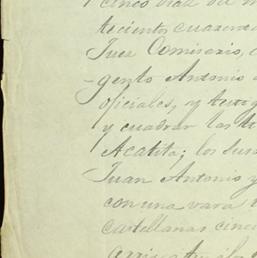 cinco dias del m
tecientos cuarenta
Juez Comisario,
-gento Antonio
oficiales, y
y cuadrar las
Acatita; los
Juan Antonio y
con una vara
castellanas cinc